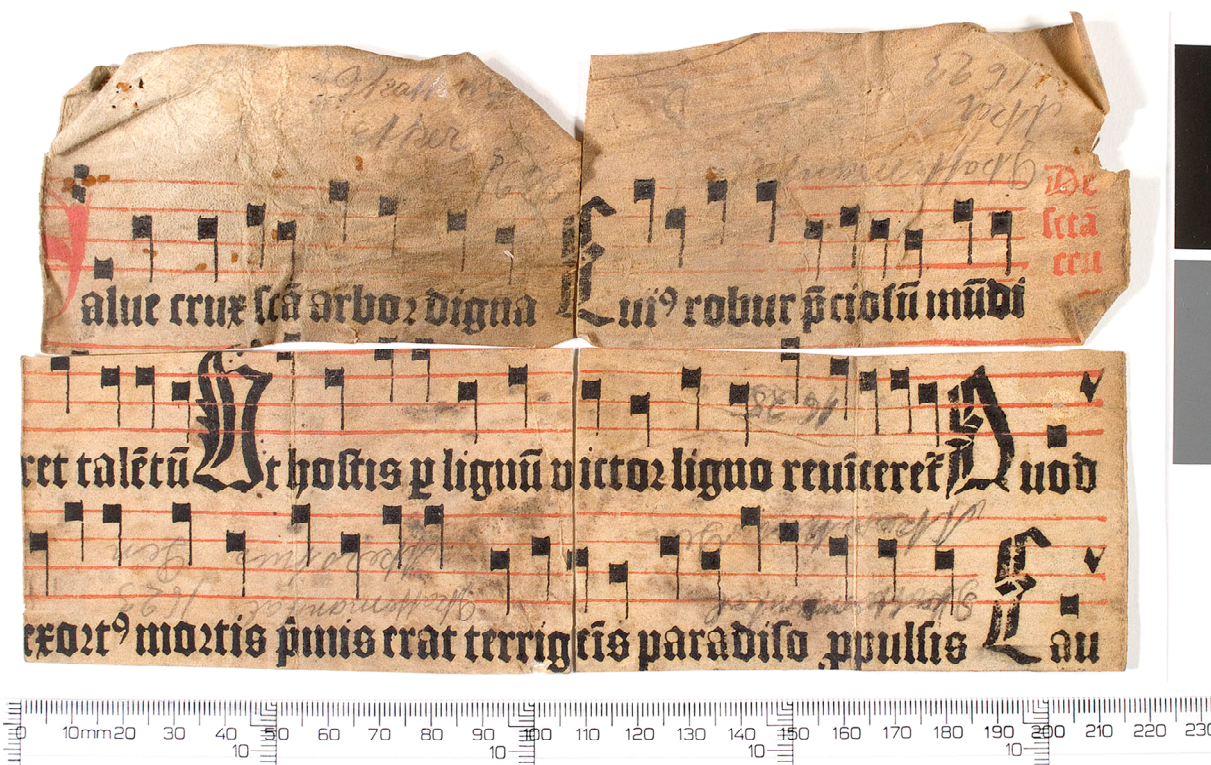 1623
De
sctā
cru
alue crux scā arbor digna Cuiꝰ robur p̄ciosū mūdi
1628
ret talētū Ut hostis ꝑ lignū victor ligno reuīceret̄ Quod
1623
exortꝰ mortis p̄mis erat terrigeīs paradiso ꝓpulsis Lau
0 10mm20 30 40 50 60 70 80 90 100 110 120 130 140 150 160 170 180 190 200 210 220 230
10 10 10 10